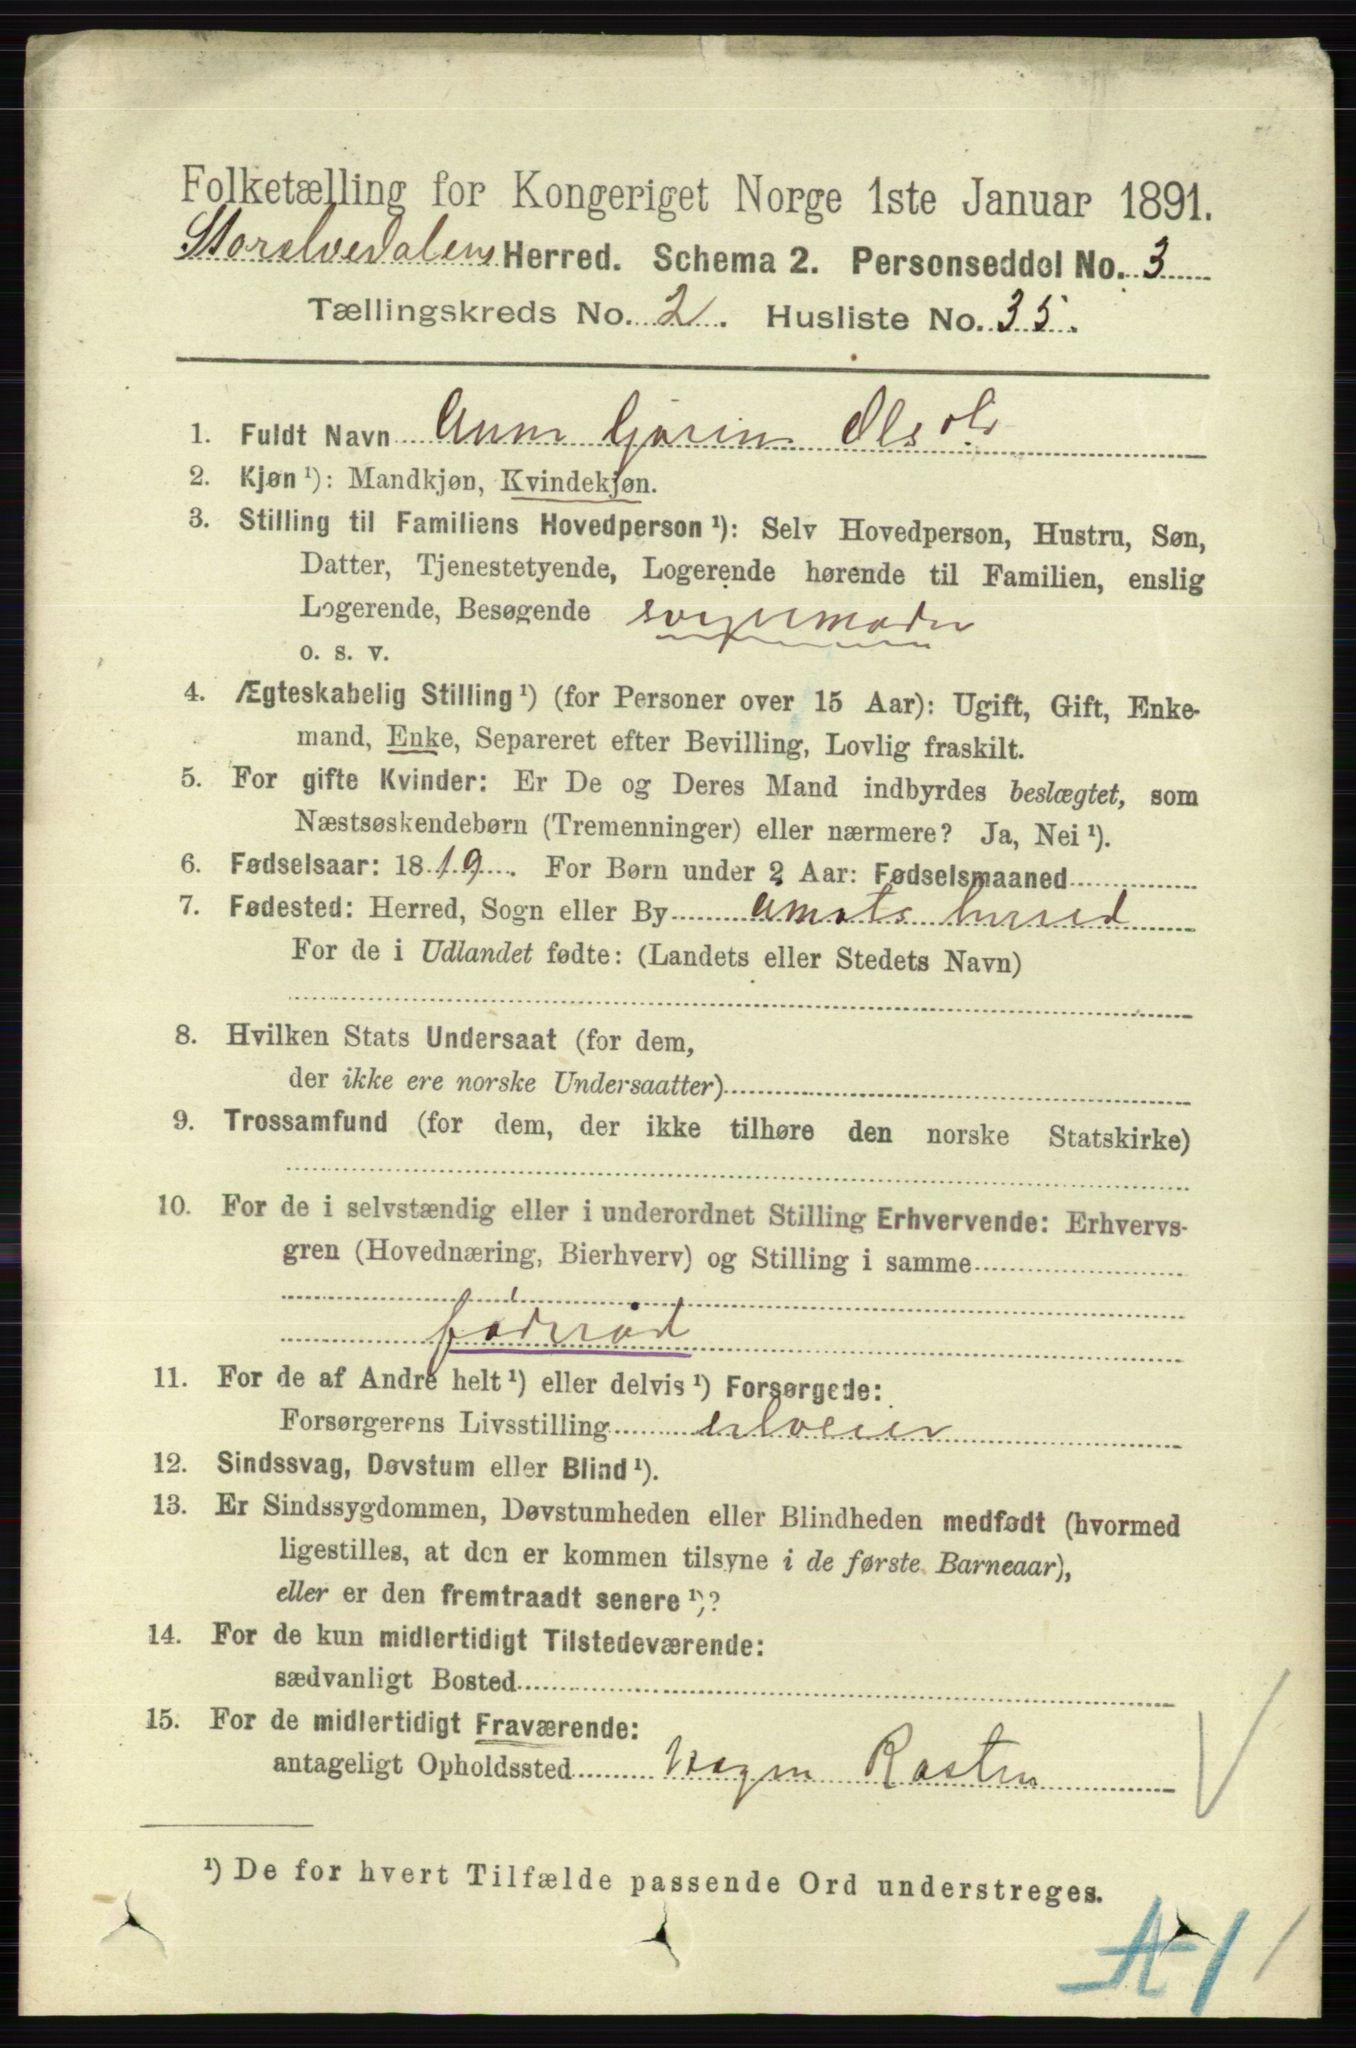 Folketælling for Kongeriget Norge 1ste Januar 1891.
Storelvedalens Herred. Schema 2. Personseddel No. 3
Tællingskreds No. 2. Husliste No. 35.
1. Fuldt Navn Anne Gjørine Olsdtr
2. Kjøn ¹): Mandkjøn, Kvindekjøn.
3. Stilling til Familiens Hovedperson ¹): Selv Hovedperson, Hustru, Søn,
Datter, Tjenestetyende, Logerende hørende til Familien, enslig
Logerende, Besøgende svigermoder
o. s. v.
4. Ægteskabelig Stilling ¹) (for Personer over 15 Aar): Ugift, Gift, Enke-
mand, Enke, Separeret efter Bevilling, Lovlig fraskilt.
5. For gifte Kvinder: Er De og Deres Mand indbyrdes beslægtet, som
Næstsøskendebørn (Tremenninger) eller nærmere? Ja, Nei ¹).
6. Fødselsaar: 1819. For Børn under 2 Aar: Fødselsmaaned
7. Fødested: Herred, Sogn eller By Åmots herred
For de i Udlandet fødte: (Landets eller Stedets Navn)
8. Hvilken Stats Undersaat (for dem,
der ikke ere norske Undersaatter)
9. Trossamfund (for dem, der ikke tilhøre den norske Statskirke)
10. For de i selvstændig eller i underordnet Stilling Erhvervende: Erhvervs-
gren (Hovednæring, Bierhverv) og Stilling i samme
föderåd
11. For de af Andre helt ¹) eller delvis ¹) Forsørgede:
Forsørgerens Livsstilling selveier
12. Sindssvag, Døvstum eller Blind ¹).
13. Er Sindssygdommen, Døvstumheden eller Blindheden medfødt (hvormed
ligestilles, at den er kommen tilsyne i de første Barneaar),
eller er den fremtraadt senere ¹)?
14. For de kun midlertidigt Tilstedeværende:
sædvanligt Bosted
15. For de midlertidigt Fraværende:
antageligt Opholdssted Rasten
¹) De for hvert Tilfælde passende Ord understreges.
A-1